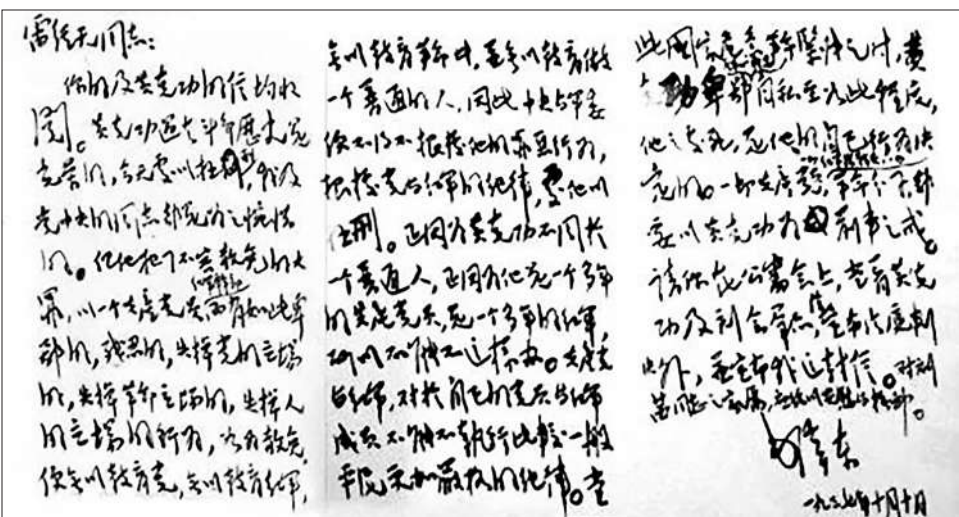 雷经天同志:
你的及黄克功的信均收
阅。黄克功过去斗争历史是
光荣的,今天处以极刑,我及
党中央的同志都是为之惋惜
的。但他犯了不容赦免的大
罪,以一个共产党员红军干部而有如此卑
鄙的,残忍的,失掉党的立场
的,失掉革命立场的,失掉人
的立场的行为,如为赦免,
便无以教育党,无以教育红军,
无以教育革命者,并无以教育做
一个普通的人,因此中央与军委
便不得不根据他的罪恶行为,
根据党与红军的纪律,处他以
极刑。正因为黄克功不同于
一个普通人,正因为他是一个多年
的共产党员,是一个多年的红军,
所以不能不这样办。共产党
与红军,对于自己的党员与红军
成员不能不执行比较一般
平民更加严格的纪律。当
此国家危急革命紧张之时,黄
克功卑鄙自私至如此程度,
他之处死,是他的自己行为决
定的。一切共产党员,革命分子,都
要以黄克功为前车之戒。
请你在公审会上,当着黄克
功及到会群众,除宣布法庭判
决外,并宣布我这封信。对刘
茜同志之家属,应给以安慰与抚恤。
毛泽东
一九三七年十月十日